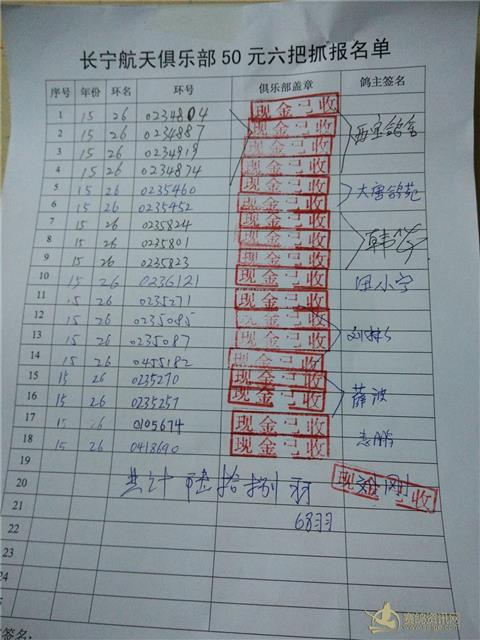 长宁航天俱乐部50元六把抓报名单
序号 年份 环名 环号 俱乐部盖章 鸽主签名
1 15 26 0234804 现金已收
2 15 26 0234887 现金已收 西宝鸽舍
3 15 26 0234919 现金已收
4 15 26 0234874 现金已收
5 15 26 0235460 现金已收 大唐鸽苑
6 15 26 0235452 现金已收
7 15 26 0235824 现金已收
8 15 26 0235801 现金已收
9 15 26 0235823 现金已收
10 15 26 0236121 现金已收 田小宁
11 15 26 0235271 现金已收
12 15 26 0235085 现金已收
13 15 26 0235087 现金已收
14 15 26 0455182 现金已收
15 15 26 0235270 现金已收
16 15 26 0235251 现金已收 薛波
17 15 26 0105674 现金已收
18 15 26 0418690 现金已收 志鹏
19
20 共计 陆拾捌 羽 现 收
21 68羽
22
23
24
签名:
赛鸽资讯网